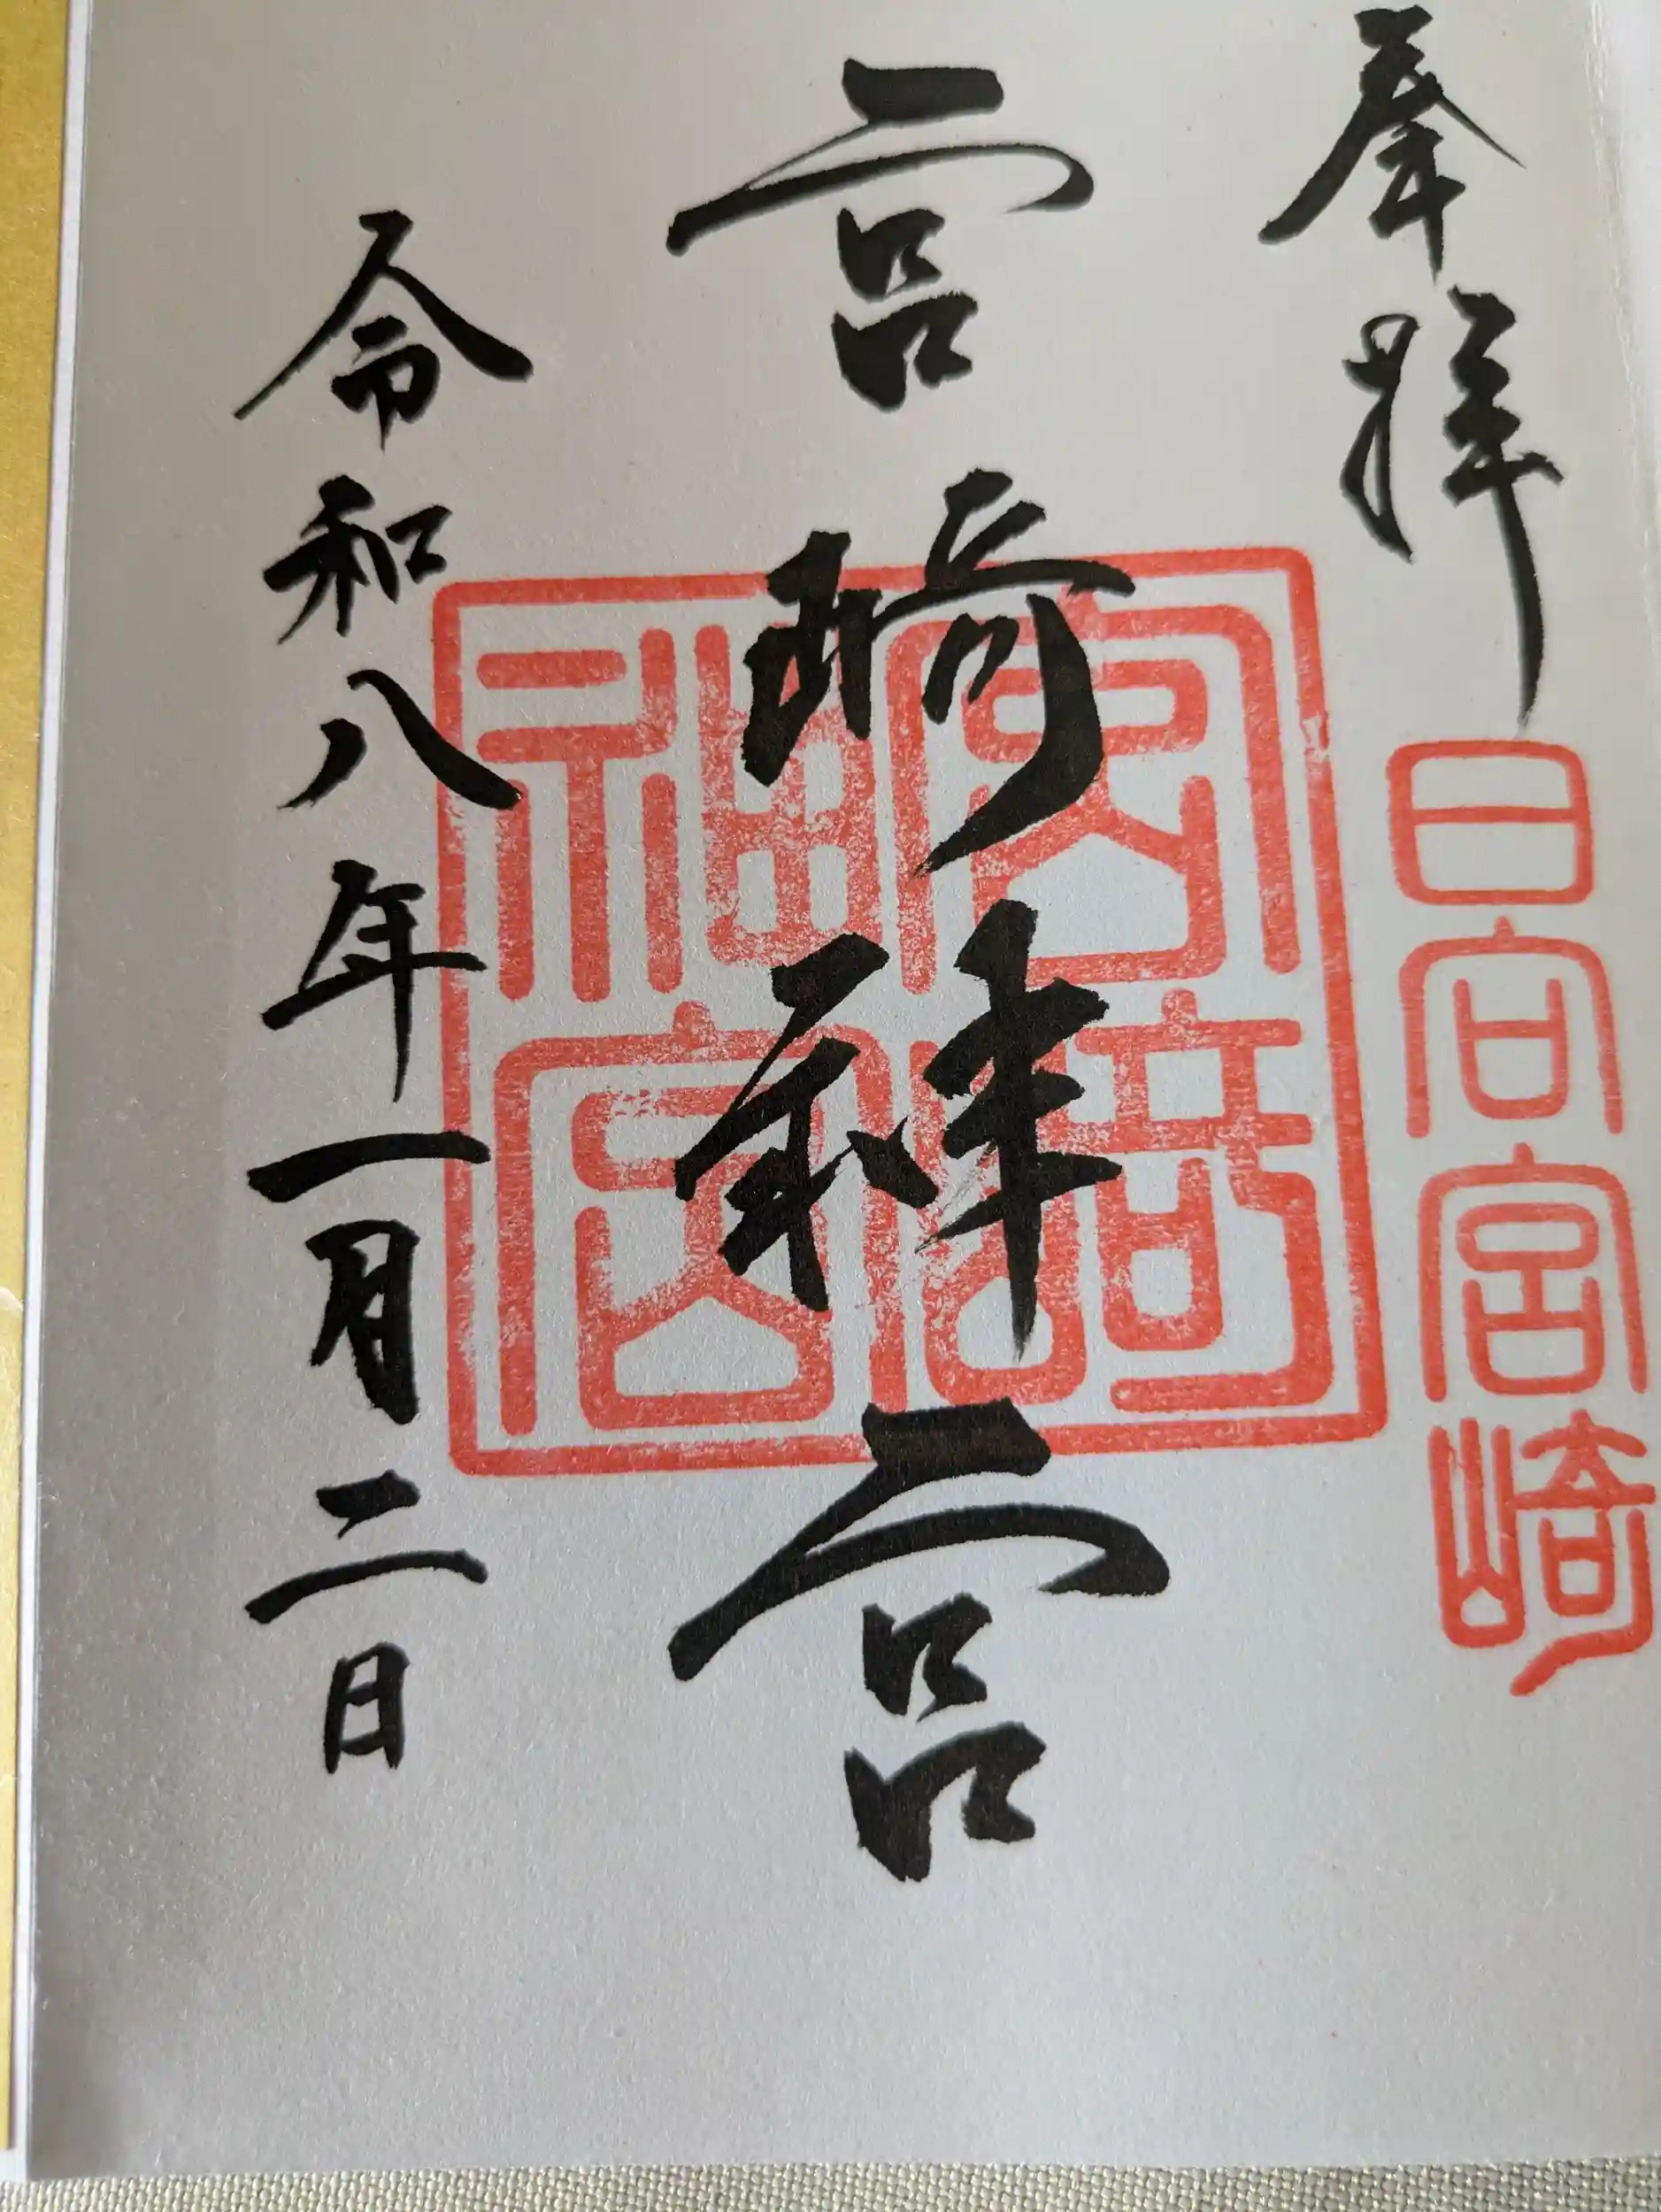 奉拝
日向宮崎
宮崎神宮
宮崎神宮
令和八年一月二日